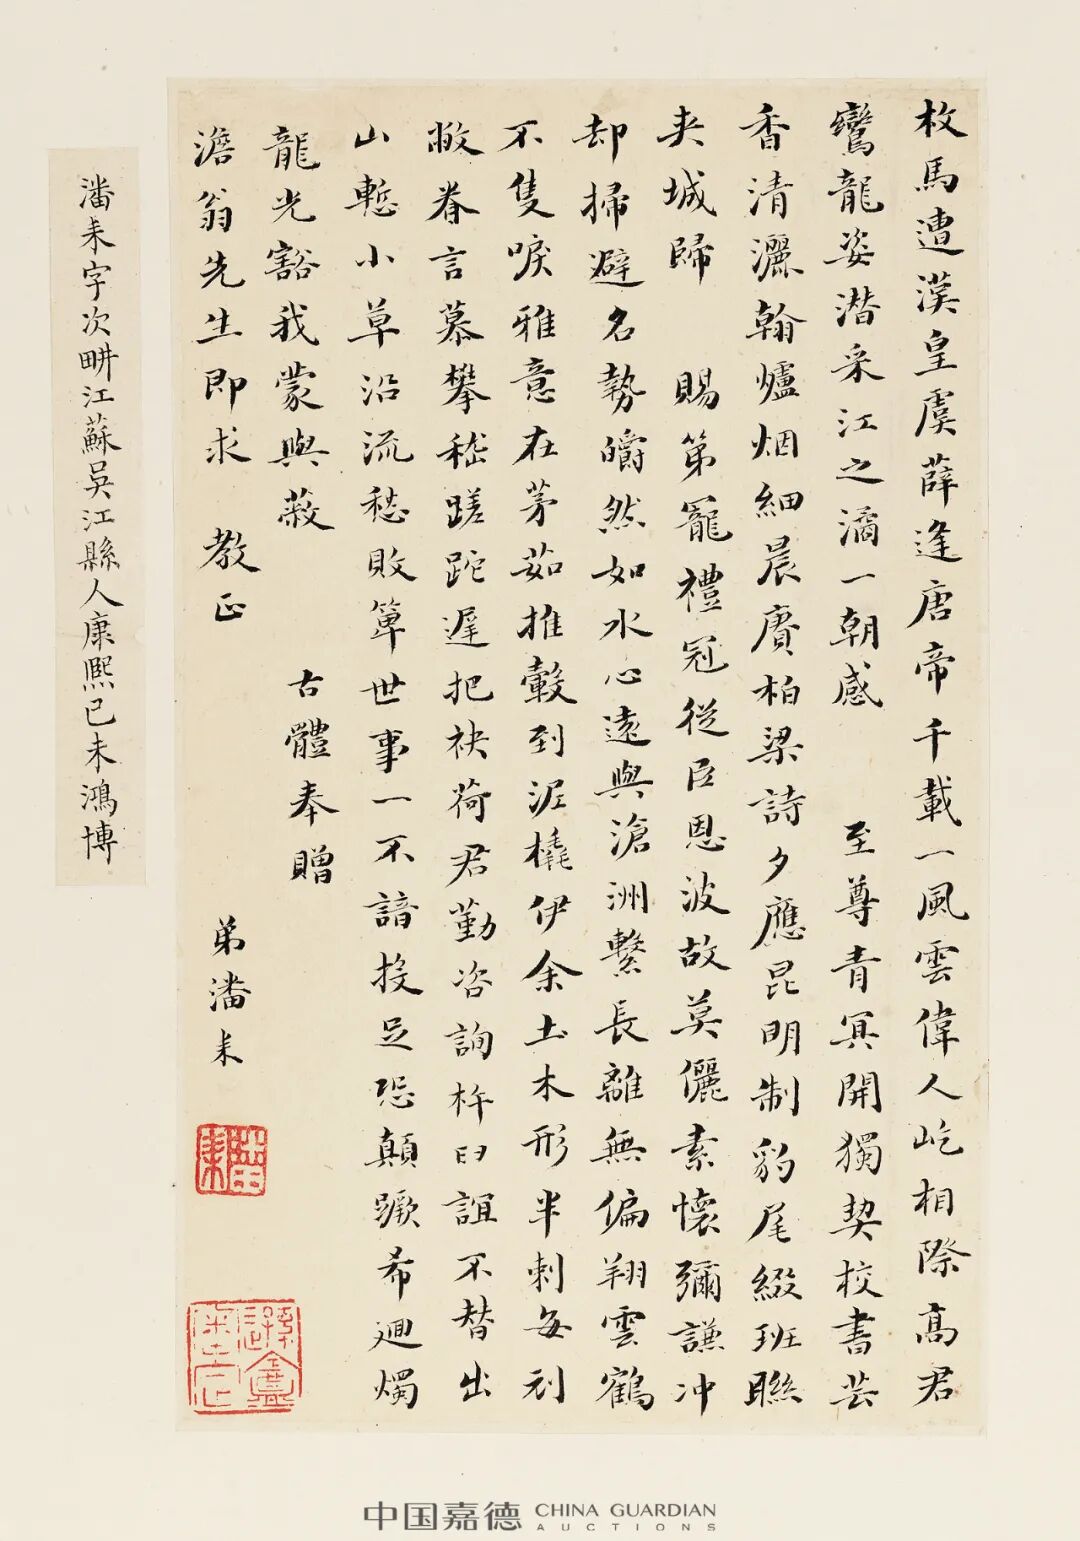 枚馬遭漢皇虞薛逢唐帝千載一風雲偉人屹相際高君
鸞龍姿潛采江之澨一朝感 至尊青冥開獨契校書芸
香清灑翰爐烟細晨賡柏梁詩夕應昆明制豹尾綴班聯
夹城歸 賜第寵禮冠從臣恩波故莫儷素懷彌謙冲
却掃避名勢皭然如水心遠與滄洲繫長離無偏翔雲鶴
不隻唳雅意在茅茹推轂到泥橇伊余土木形半刺每刓
敝眷言慕攀嵇蹉跎遲把袂荷君勤咨詢杵臼誼不替出
山慙小草沿流愁敗箄世事一不諳投足恐顛蹶希迴燭
龍光豁我蒙與蔽
古體奉贈
澹翁先生即求 教正
弟潘耒
潘耒字次畊江蘇吳江縣人康熙己未鴻博
中国嘉德 CHINA GUARDIAN
AUCTIONS